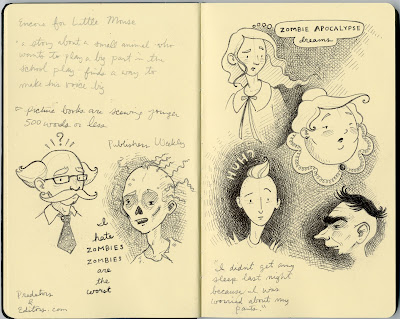 Encore for Little Mouse
"a story about a small animal who
wants to play a big part in the
school play finds a way to
make his voice big
picture books are skewing younger
500 words or less.
Publishers Weekly
!?!
I
hate
ZOMBIES
ZOMBIES
are
the
worst
Predators
&
Editors.com
ZOMBIE APOCALYPSE
dreams.
HUH?
"I didn't get any
sleep last night
because I was
worried about my
pants."